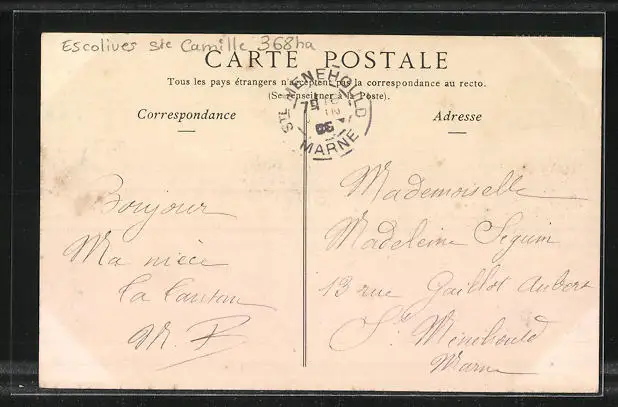 Escolives Ste Camille 368ha
CARTE POSTALE
Tous les pays étrangers n'acceptent pas la correspondance au recto.
(Se renseigner à la Poste).
Correspondance
Adresse
STE MENEHOULD
MARNE
Bonjour
Ma nièce
la
M. P
Mademoiselle
Madeleine Seguin
13 rue Gaillot Aubert
Ste Ménehould
Marne